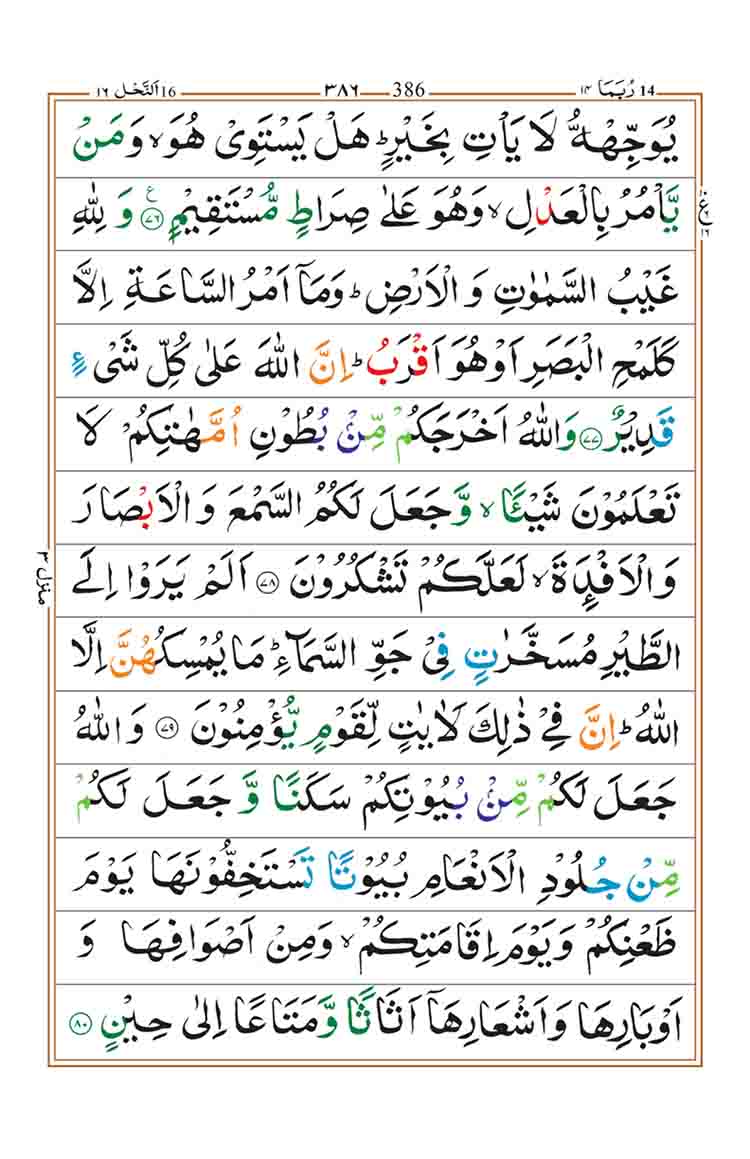 14 رُبَمَا ١٤
386 ٣٨٦
16 اَلنَّحْل ١٦
يُوَجِّهْهُّ لَا يَاْتِ بِخَيْرٍ ؕ هَلْ يَسْتَوِیْ هُوَ ۙ وَمَنْ
يَّاْمُرُ بِالْعَدْلِ ۙ وَهُوَ عَلٰی صِرَاطٍ مُّسْتَقِيْمٍ ﴿٧٦﴾ ع وَ لِلّٰهِ
ع
غَيْبُ السَّمٰوٰتِ وَ الْاَرْضِ ؕ وَمَاۤ اَمْرُ السَّاعَةِ اِلَّا
كَلَمْحِ الْبَصَرِ اَوْ هُوَ اَقْرَبُ ؕ اِنَّ اللّٰهَ عَلٰی كُلِّ شَیْءٍ
قَدِيْرٌ ﴿٧٧﴾ وَاللّٰهُ اَخْرَجَكُمْ مِّنْۢ بُطُوْنِ اُمَّهٰتِكُمْ لَا
تَعْلَمُوْنَ شَيْـًٔا ۙ وَّ جَعَلَ لَكُمُ السَّمْعَ وَ الْاَبْصَارَ
وَالْاَفْـِٕدَةَ ۙ لَعَلَّكُمْ تَشْكُرُوْنَ ﴿٧٨﴾ اَلَمْ يَرَوْا اِلَی
منزل ٣
الطَّيْرِ مُسَخَّرٰتٍ فِیْ جَوِّ السَّمَآءِ ؕ مَا يُمْسِكُهُنَّ اِلَّا
اللّٰهُ ؕ اِنَّ فِیْ ذٰلِكَ لَاٰيٰتٍ لِّقَوْمٍ يُّؤْمِنُوْنَ ﴿٧٩﴾ وَ اللّٰهُ
جَعَلَ لَكُمْ مِّنْۢ بُيُوْتِكُمْ سَكَنًا وَّ جَعَلَ لَكُمْ
مِّنْ جُلُوْدِ الْاَنْعَامِ بُيُوْتًا تَسْتَخِفُّوْنَهَا يَوْمَ
ظَعْنِكُمْ وَ يَوْمَ اِقَامَتِكُمْ ۙ وَمِنْ اَصْوَافِهَا وَ
اَوْبَارِهَا وَ اَشْعَارِهَاۤ اَثَاثًا وَّ مَتَاعًا اِلٰی حِيْنٍ ﴿٨٠﴾